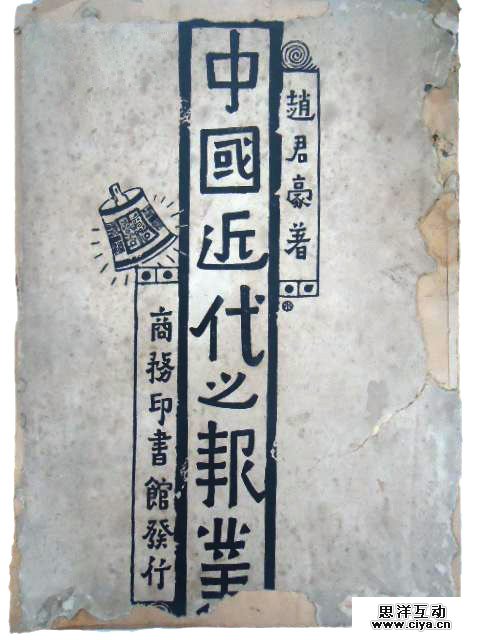 趙君豪著
中國近代之報業
商務印書館發行
思洋互动
www.ciya.cn